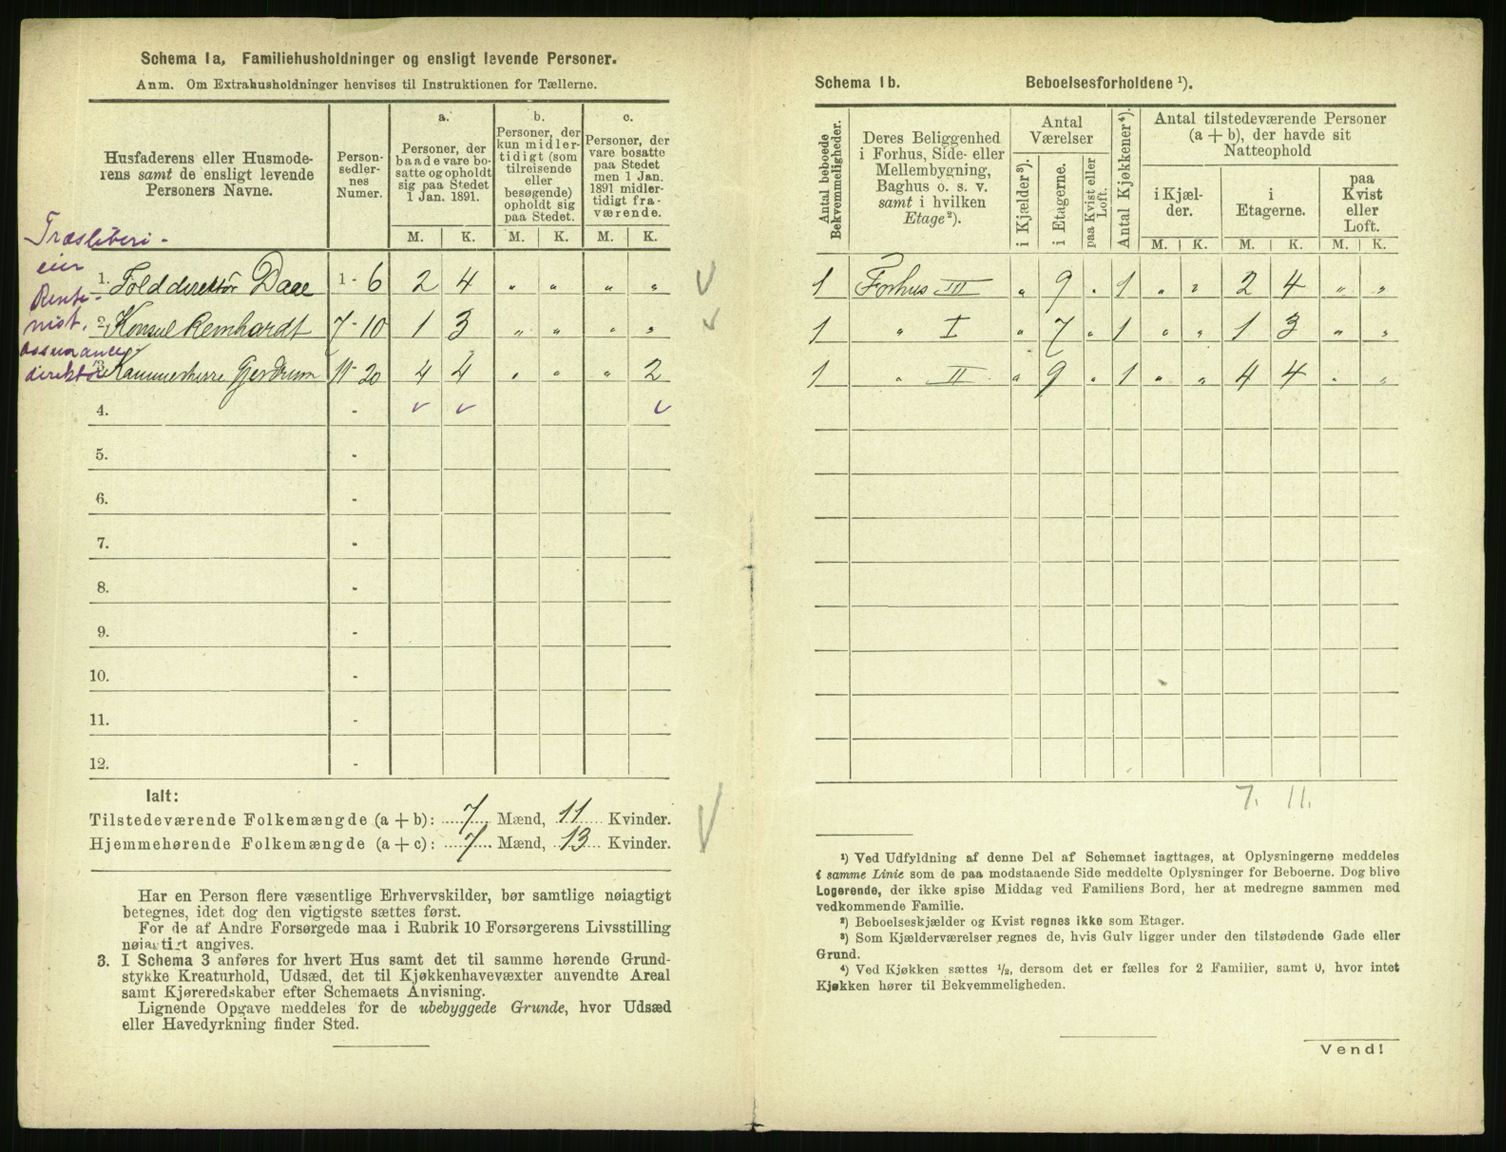 Schema 1a, Familiehusholdninger og ensligt levende Personer.
Anm. Om Extrahusholdninger henvises til Instruktionen for Tællerne.
Husfaderens eller Husmode-
rens samt de ensligt levende
Personers Navne.
Person-
sedler-
nes
Numer.
a.
Personer, der
baade vare bo-
satte og opholdt
sig paa Stedet
1 Jan. 1891.
b.
Personer, der
kun midler-
tidigt (som
tilreisende
eller
besøgende)
opholdt sig
paa Stedet.
c.
Personer, der
vare bosatte
paa Stedet
men 1 Jan.
1891 midler-
tidigt fra-
værende.
M. K. M. K. M. K.
eier
1. Tolddirektør Daae 1 - 6 2 4 " " " "
Rente-
nist.
2. Konsul Reinhardt 7 - 10 1 3 " " " "
assurance
direktør
3. Kammerherre Gjerdrum 11 - 20 4 4 " " " 2
4. -
5. -
6. -
7. -
8. -
9. -
10. -
11. -
12. -
Ialt:
Tilstedeværende Folkemængde (a + b): 7 Mænd, 11 Kvinder.
Hjemmehørende Folkemængde (a + c): 7 Mænd, 13 Kvinder.
Har en Person flere væsentlige Erhvervskilder, bør samtlige nøiagtigt
betegnes, idet dog den vigtigste sættes først.
For de af Andre Forsørgede maa i Rubrik 10 Forsørgerens Livsstilling
nøiagtigt angives.
3. I Schema 3 anføres for hvert Hus samt det til samme hørende Grund-
stykke Kreaturhold, Udsæd, det til Kjøkkenhavevæxter anvendte Areal
samt Kjøreredskaber efter Schemaets Anvisning.
Lignende Opgave meddeles for de ubebyggede Grunde, hvor Udsæd
eller Havedyrkning finder Sted.
Schema 1b. Beboelsesforholdene ¹).
Antal beboede
Bekvemmeligheder.
Deres Beliggenhed
i Forhus, Side- eller
Mellembygning,
Baghus o. s. v.
samt i hvilken
Etage²).
Antal
Værelser
i Kjælder³).
i Etagerne.
paa Kvist eller
Loft.
Antal Kjøkkener⁴).
Antal tilstedeværende Personer
(a + b), der havde sit
Natteophold
i Kjæl-
der.
i
Etagerne.
paa
Kvist
eller
Loft.
M. K. M. K. M. K.
1 Forhus III " 9 " 1 " " 2 4 " "
1 " I " 7 " 1 " " 1 3 " "
1 " II " 9 " 1 " " 4 4 " "
7. 11.
¹) Ved Udfyldning af denne Del af Schemaet iagttages, at Oplysningerne meddeles
i samme Linie som de paa modstaaende Side meddelte Oplysninger for Beboerne. Dog blive
Logerende, der ikke spise Middag ved Familiens Bord, her at medregne sammen med
vedkommende Familie.
²) Beboelseskjælder og Kvist regnes ikke som Etager.
³) Som Kjælderværelser regnes de, hvis Gulv ligger under den tilstødende Gade eller
Grund.
⁴) Ved Kjøkken sættes ½, dersom det er fælles for 2 Familier, samt 0, hvor intet
Kjøkken hører til Bekvemmeligheden.
Vend!